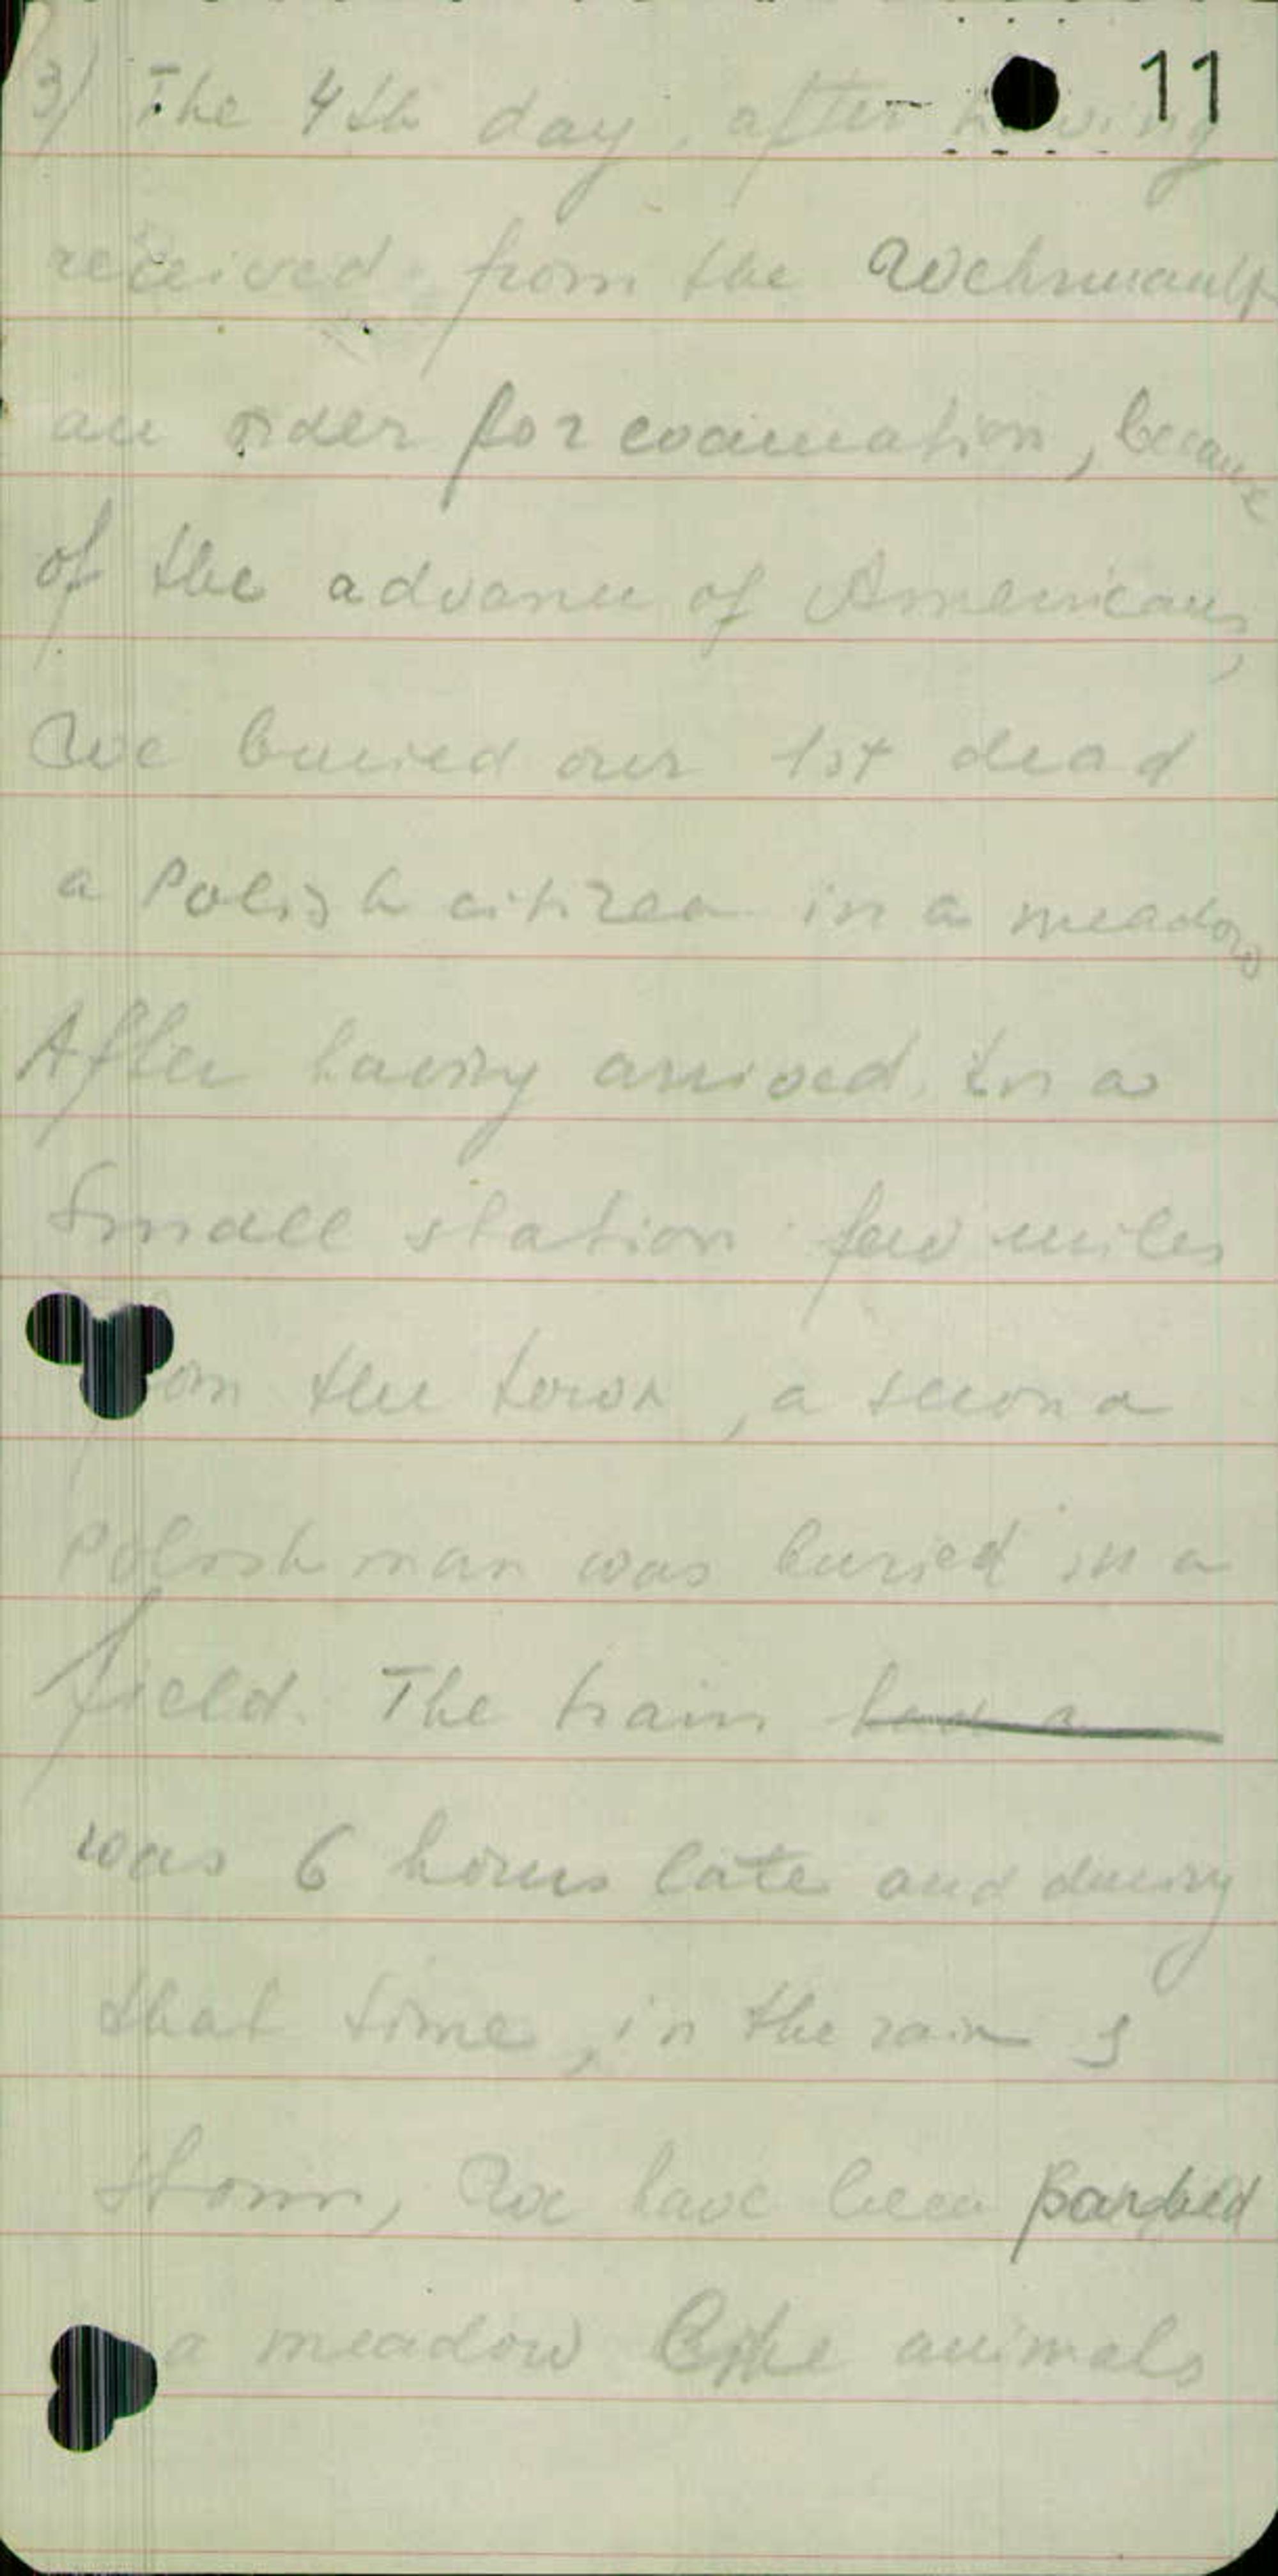 11
3) The 4th day, after having
received from the Wehrmacht
an order for evacuation, because
of the advance of Americans,
We buried our 1st dead
a Polish citizen in a meadow
After having arrived in a
Small station few miles
from the town, a second
Polish man was buried in a
field. The train
was 6 hours late and during
that time, in the rain &
storm, We have been parked
a meadow like animals